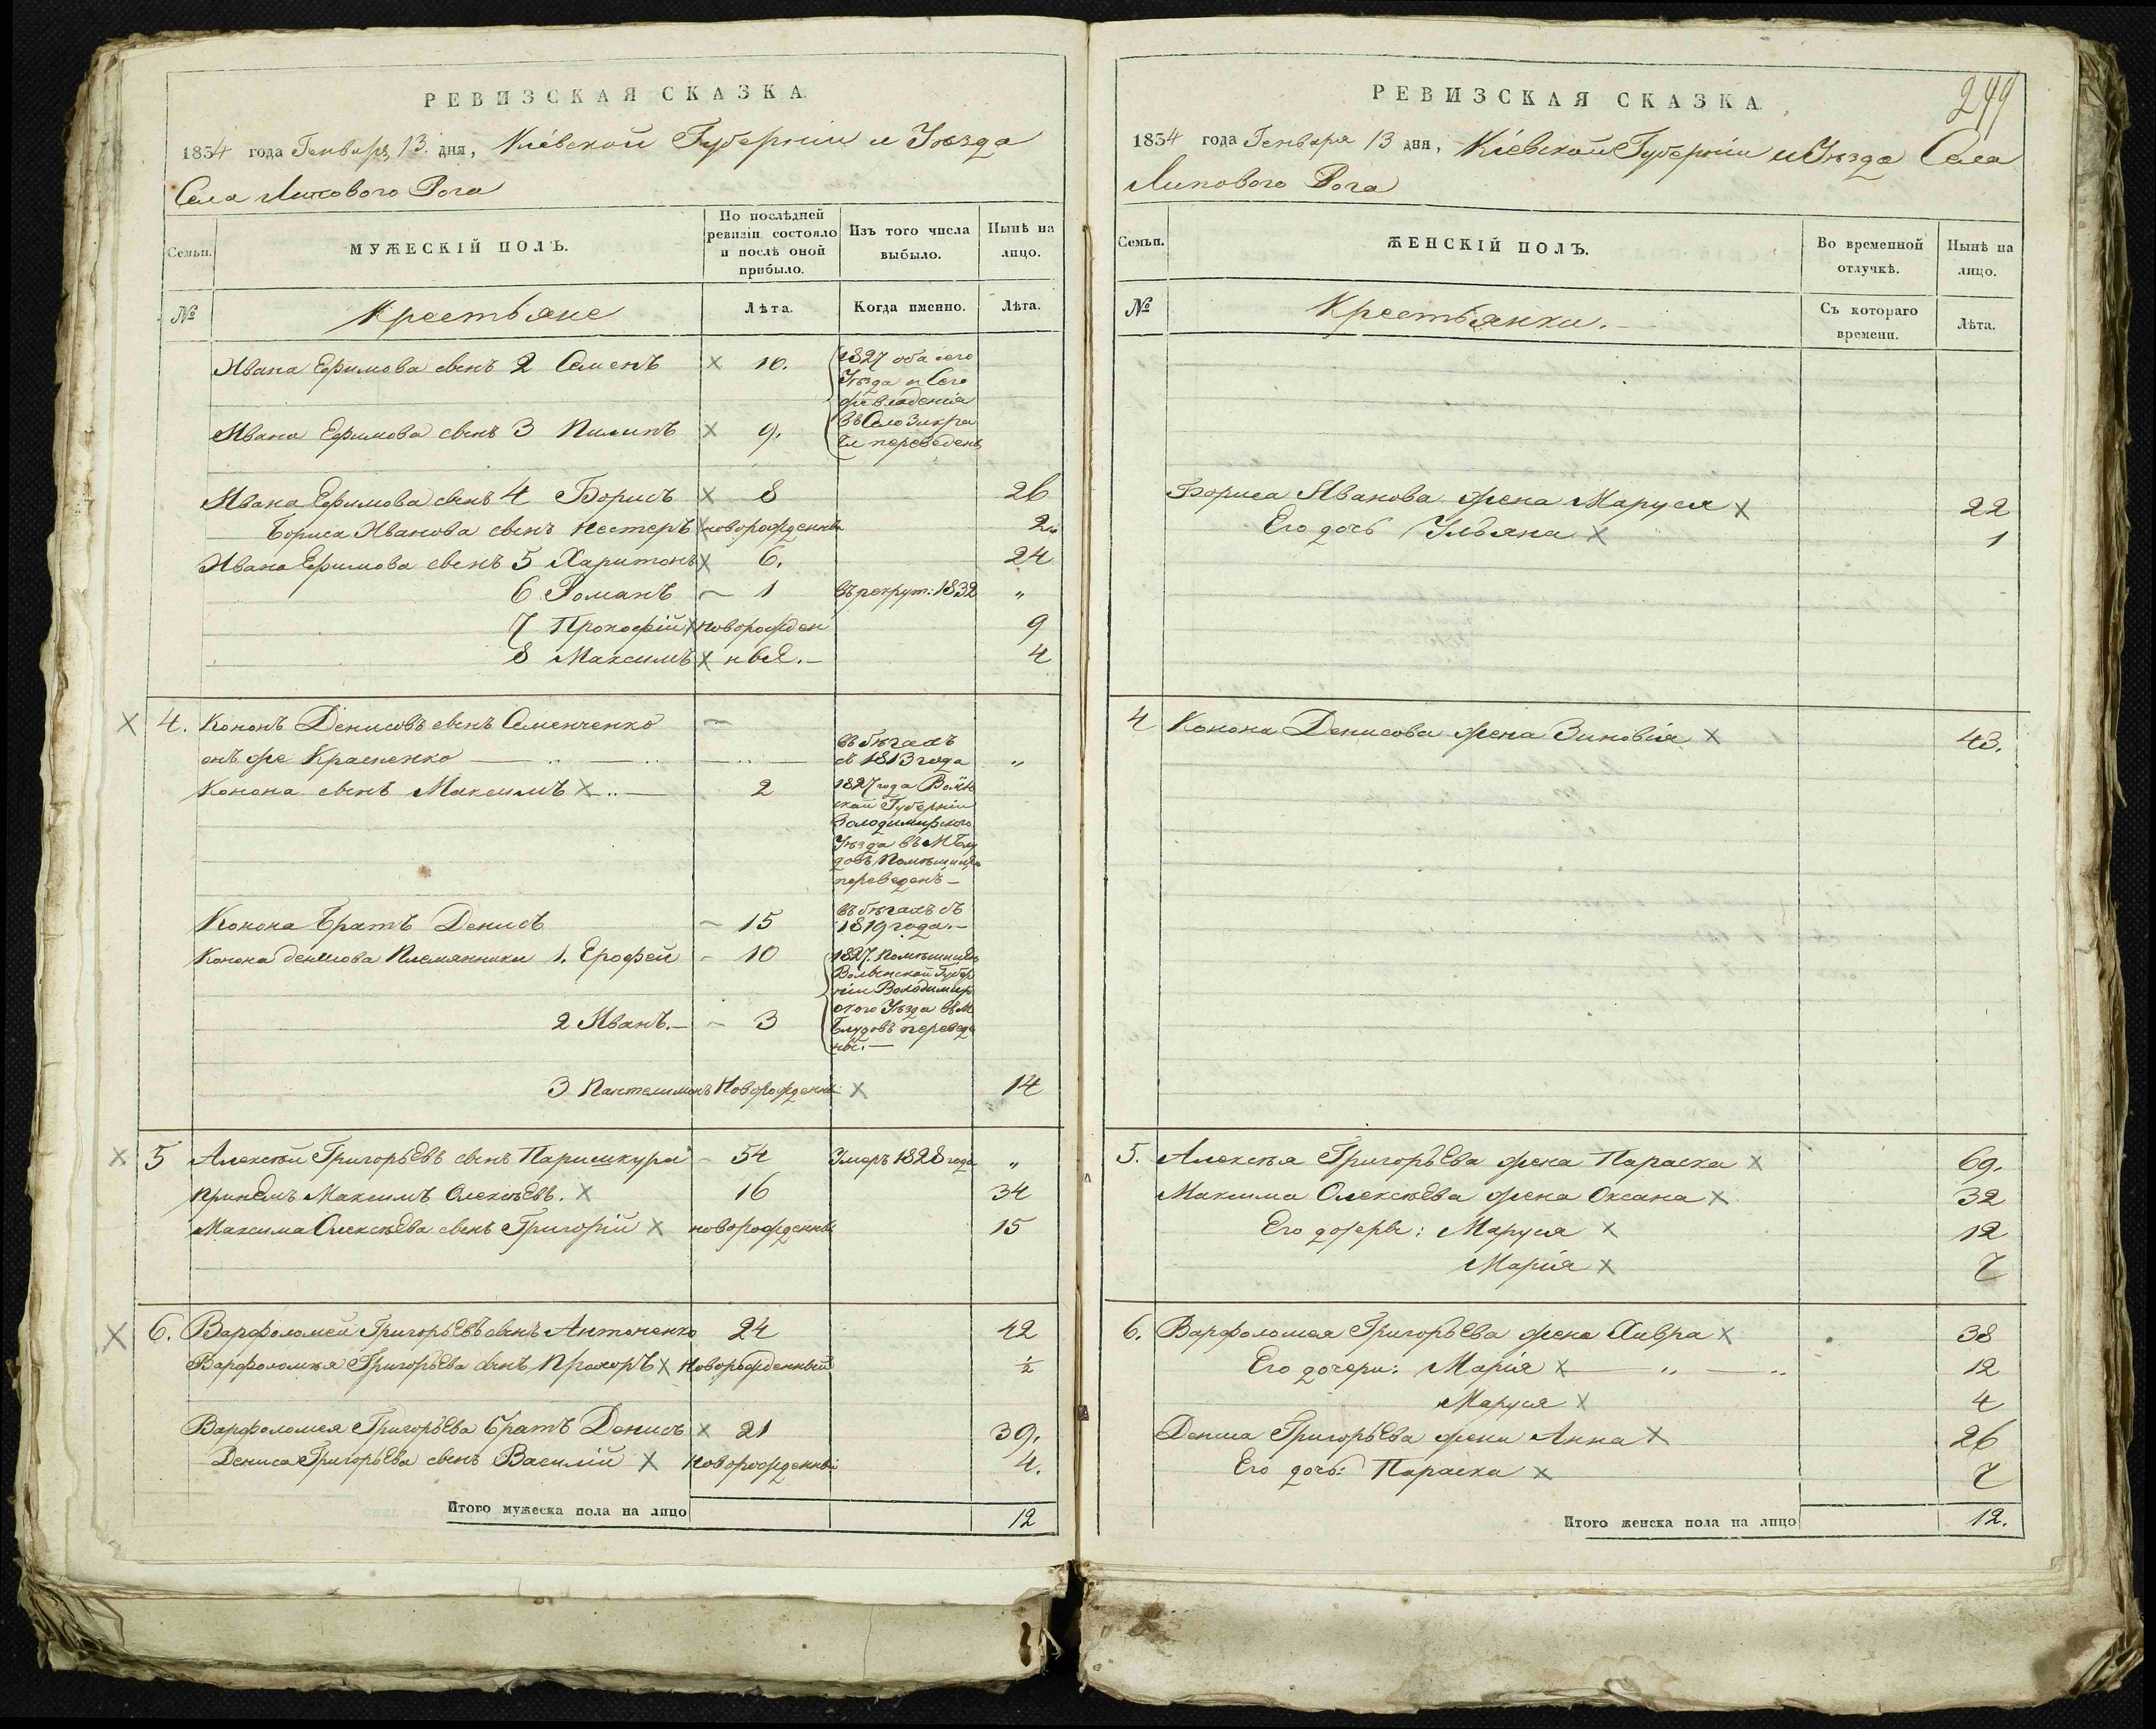 РЕВИЗСКАЯ СКАЗКА
1834 года Генваря 13. дня, Кіевской Губерніи и Уѣзда
Села Липового Рога
Семьи.
МУЖЕСКІЙ ПОЛЪ.
По послѣдней ревизіи состояло и послѣ оной прибыло.
Изъ того числа выбыло.
Нынѣ на лицо.
№
Крестьяне
Лѣта.
Когда именно.
Лѣта.
Ивана Ефимова сынъ 2 Семенъ × 10.
1827 оба сего
Уѣзда и Сего
же владенія
Ивана Ефимова сынъ 3 Пилипъ × 9.
въ Село
переведены
Ивана Ефимова сынъ 4 Борисъ × 8 26
Бориса Иванова сынъ Нестеръ × новорожденны 2
Ивана Ефимова сынъ 5 Харитонъ × 6. 24
6 Романъ – 1 въ рекрут: 1832 „
7 Прокофій × новорожден 9
8 Максимъ × ныя.– 4
× 4. Кононъ Денисовъ сынъ Семенченко –
онъ же Красненко — „ — „ — „ —
въ бѣгахъ
съ 1813 года „
Конона сынъ Максимъ × „ — 2
1827 года Волын
ской Губерніи
Володимирского
Уѣзда въ М. Блу
довъ Помѣщицею
переведенъ –
Конона Братъ Денисъ – 15
въ бѣгахъ съ
1819 года.–
Конона Денисова Племянники 1. Ерофей – 10
1827. Помѣщицею
Волынской Губер
ніи Володимир
2 Иванъ.– – 3
ского Уѣзда въ М
Блудовъ переведе
ны.–
3 Пантелимонъ Новорожденны × 14
× 5 Алексѣй Григорьевъ сынъ Паришкура – 54 Умеръ 1828 года „
Пріемъ Максимъ Олексѣевъ. × 16 34
Максима Олексѣева сынъ Григорій × новорожденны 15
× 6. Варфоломей Григорьевъ сынъ Антоненко 24 42
Варфоломея Григорьева сынъ Прохоръ × Новорожденный ½
Варфоломея Григорьева братъ Денисъ × 21 39.
Дениса Григорьева сынъ Василій × Новорожденны 4.
Итого мужеска пола на лицо 12
249
РЕВИЗСКАЯ СКАЗКА
1834 года Генваря 13 дня, Кіевской Губерніи и Уѣзда Села
Липового Рога
Семьи.
ЖЕНСКІЙ ПОЛЪ.
Во временной отлучкѣ.
Нынѣ на лицо.
№
Крестьянки.–
Съ котораго времени.
Лѣта.
Бориса Иванова жена Маруся × 22
Его дочь Ульяна × 1
4 Конона Денисова жена Зиновія × 43.
5. Алексѣя Григорьева жена Параска × 69.
Максима Олексѣева жена Оксана × 32
Его дочеры: Маруся × 12
Марія × 7
6. Варфоломея Григорьева жена Хивра × 38
Его дочери: Марія × — „ — „ 12
Маруся × 4
Дениса Григорьева жена Анна × 26
Его дочь: Параска × 7
Итого женска пола на лицо 12.